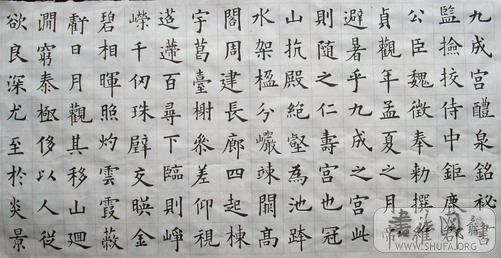 九成宮醴泉銘秘書
監撿挍侍中鉅鹿郡
公臣魏徵奉勅撰維
貞觀年孟夏之月帝
避暑乎九成之宮此
則隨之仁壽宮也冠
山抗殿絕壑為池跨
水架楹分巖竦闕高
閣周建長廊四起棟
宇葛臺榭參差仰視
迢遰百尋下臨則崢
嶸千仞珠壁交暎金
碧相暉照灼雲霞蔽
虧日月觀其移山迴
澗窮泰極侈以人從
欲良深尤至於炎景
WWW.SHUFA.ORG